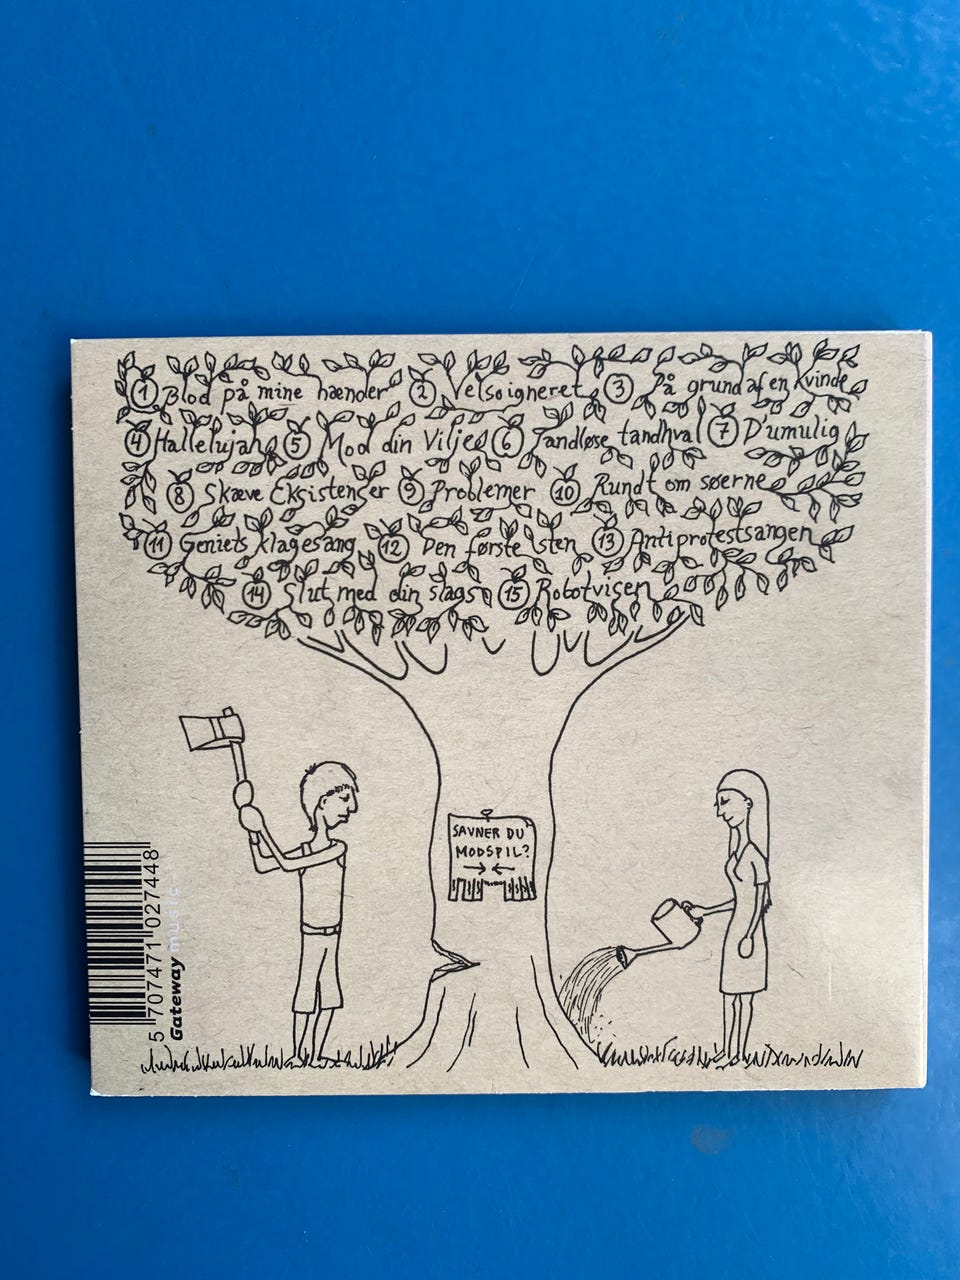 1 Blod på mine hænder 2 Velsoigneret 3 På grund af en kvinde
4 Hallelujah 5 Mod din Vilje 6 Tandløse tandhval 7 D'umulig
8 Skæve Eksistenser 9 Problemer 10 Rundt om søerne
11 Geniets klagesang 12 Den første sten 13 Antiprotestsangen
14 Slut med din slags 15 Robotvisen
SAVNER DU
MODSPIL?
5 707471 027448
Gateway music